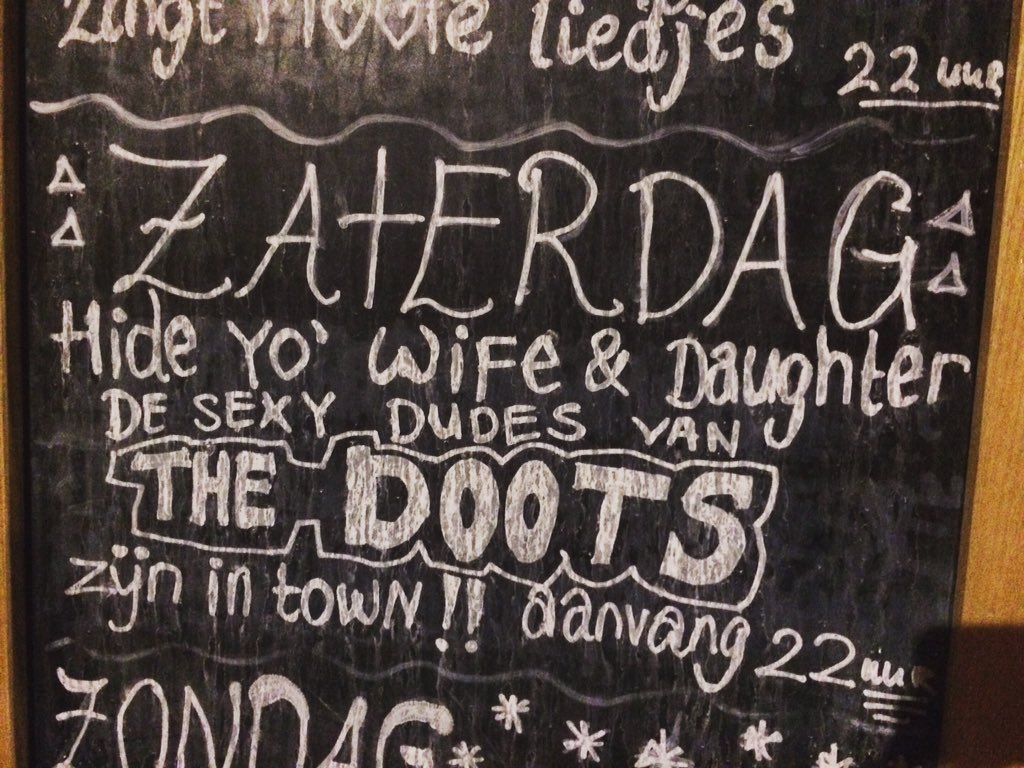 zingt mooie liedjes
22 uur
ZATERDAG
Hide Yo' Wife & Daughter
DE SEXY DUDES VAN
THE DOOTS
zijn in town !! aanvang 22 uur
ZONDAG